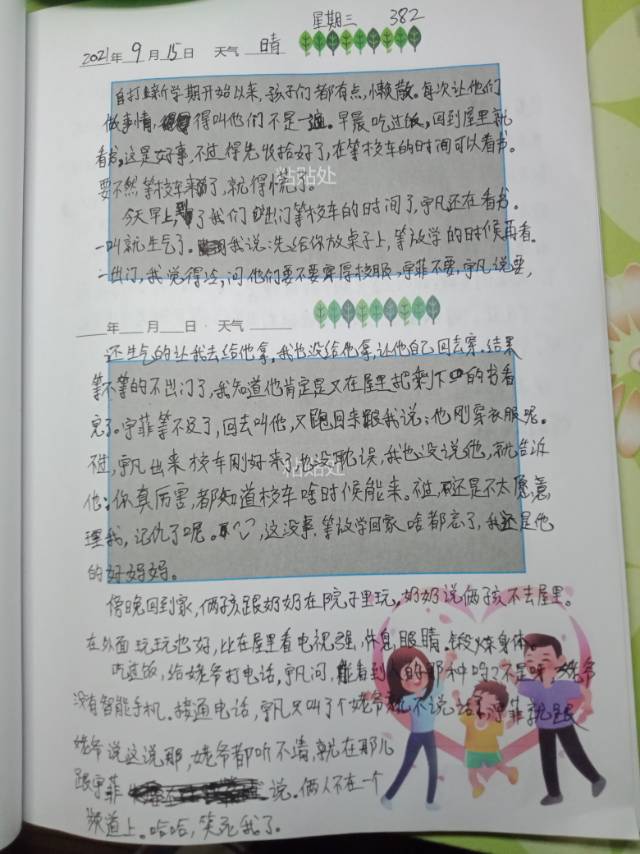 星期三 382
2021年 9月15日 天气 晴
自打新学期开始以来,孩子们都有点,懒散。每次让他们
做事情,得叫他们不是一遍。早晨吃过饭,回到屋里就
看书,这是好事,不过得先收拾好了,在等校车的时间可以看书。
粘贴处
要不然等校车来了,就得慌了。
今天早上,到了我们出门等校车的时间了,宇凡还在看书。
一叫就生气了。我说:先给你放桌子上,等放学的时候再看。
一出门,我觉得冷,问他们要不要穿厚校服,宇菲不要,宇凡说要,
年 月 日 天气
还生气的让我去给他拿,我也没给他拿,让他自己回去穿。结果
等不等的不出门了,我知道他肯定是又在屋里把剩下的书看
完了。宇菲等不及了,回去叫他,又跑回来跟我说:他刚穿衣服呢。
不过,宇凡出来校车刚好来了,也没耽误,我也没说他,就告诉
粘贴处
他:你真厉害,都知道校车啥时候能来。不过,还是不太愿意
理我,记仇了呢。这没事,等放学回家啥都忘了,我还是他
的好妈妈。
傍晚回到家,俩孩跟奶奶在院子里玩,奶奶说俩孩不去屋里。
在外面玩玩也好,比在屋里看电视强,休息眼睛。锻炼身体
吃过饭,给姥爷打电话,宇凡问,能看到人的那种吗?不是呀,姥爷
没有智能手机。接通电话,宇凡只叫了个姥爷就不说话了,宇菲就跟
姥爷说这说那,姥爷都听不清,就在那儿
跟宇菲说。俩人不在一个
频道上。哈哈,笑死我了。